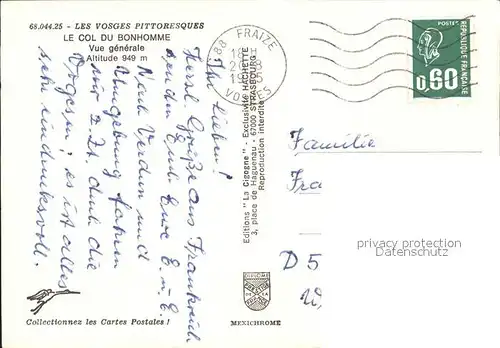 68.044.25 - LES VOSGES PITTORESQUES
LE COL DU BONHOMME
Vue générale
Altitude 949 m
Ihr Lieben!
Herzl. Grüße aus Frankreich
senden Euch Eure E. u. E.
Nach Verdun und
Umgebung fahren
wir z. Zt. durch die
Vogesen; es ist alles
sehr eindrucksvoll.
Collectionnez les Cartes Postales !
Editions "La Cigogne" - Exclusivité HACHETTE
3, place de Haguenau - 67000 STRASBOURG
Reproduction interdite
MEXICHROME
88 FRAIZE
VOSGES
POSTES
0,60
REPUBLIQUE FRANÇAISE
Familie
Fra
D 5
privacy protection
Datenschutz